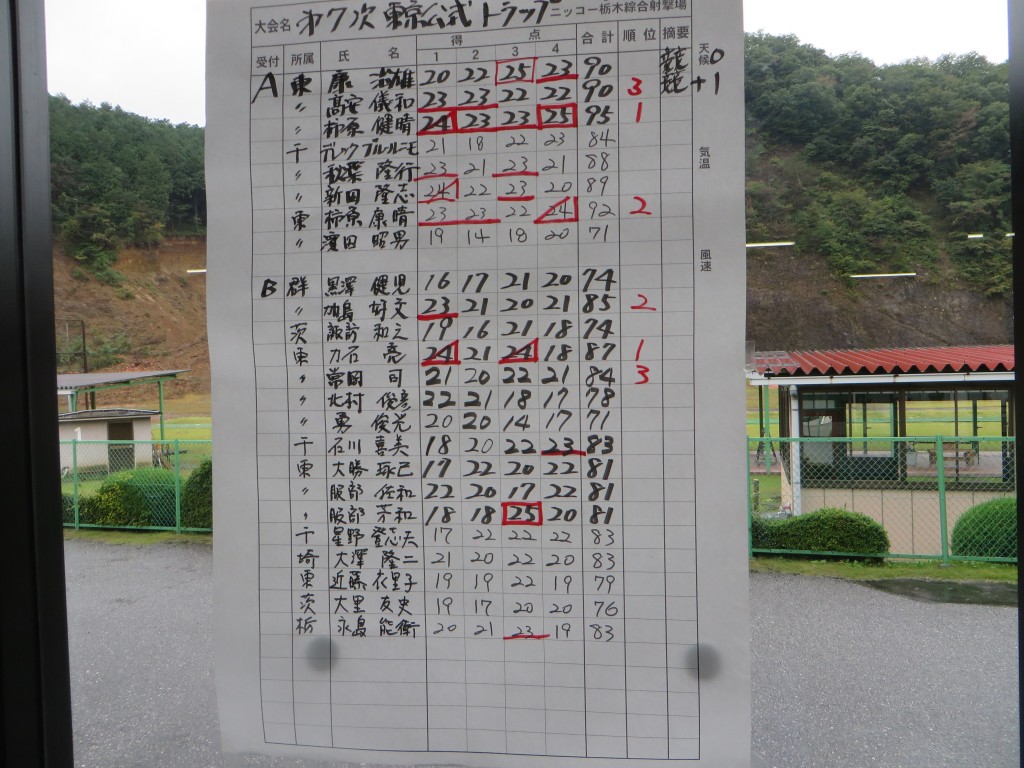 大会名 第7次東京公式トラップ ニッコー栃木綜合射撃場
受付 所属 氏名 得点 合計 順位 摘要 天候
1 2 3 4
A 東 康 20 22 25 23 90 競 0
〃 高安 儀和 23 23 22 22 90 3 競 +1
〃 柿原 健晴 24 23 23 25 95 1
千 21 18 22 23 84
〃 秋葉 隆行 23 21 23 21 88
〃 新田 隆志 24 22 23 20 89
東 柿原 康晴 23 23 22 24 92 2
〃 濱田 昭男 19 14 18 20 71
B 群 黒澤 健児 16 17 21 20 74
〃 加島 好文 23 21 20 21 85 2
茨 諏訪 和之 19 16 21 18 74
東 刀石 亮 24 21 24 18 87 1
〃 常岡 司 21 20 22 21 84 3
〃 北村 俊彦 22 21 18 17 78
〃 勇 俊光 20 20 14 17 71
千 石川 喜美 18 20 22 23 83
東 大勝 琢己 17 22 20 22 81
〃 服部 佐和 22 20 17 22 81
〃 服部 芳和 18 18 25 20 81
千 星野 17 22 22 22 83
埼 大澤 隆二 21 20 22 20 83
東 近藤 衣里子 19 19 22 19 79
茨 大里 友史 19 17 20 20 76
栃 永島 能衛 20 21 23 19 83
気温
風速